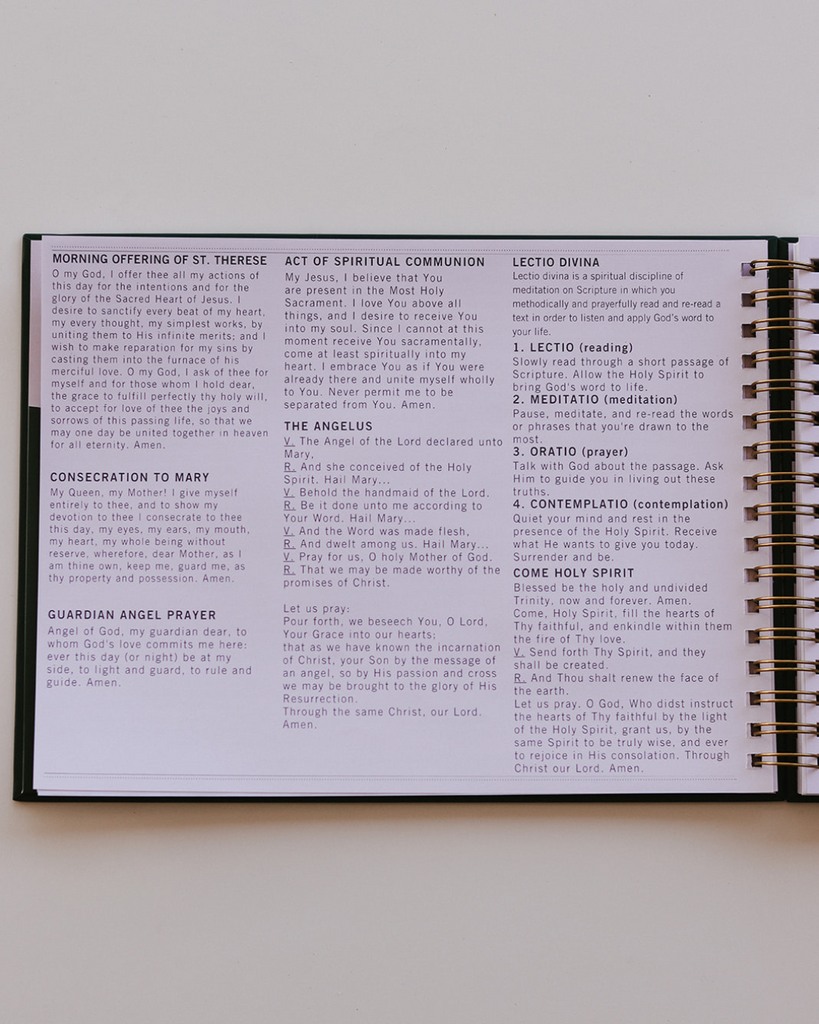 MORNING OFFERING OF ST. THERESE
O my God, I offer thee all my actions of
this day for the intentions and for the
glory of the Sacred Heart of Jesus. I
desire to sanctify every beat of my heart,
my every thought, my simplest works, by
uniting them to His infinite merits; and I
wish to make reparation for my sins by
casting them into the furnace of his
merciful love. O my God, I ask of thee for
myself and for those whom I hold dear,
the grace to fulfill perfectly thy holy will,
to accept for love of thee the joys and
sorrows of this passing life, so that we
may one day be united together in heaven
for all eternity. Amen.
CONSECRATION TO MARY
My Queen, my Mother! I give myself
entirely to thee, and to show my
devotion to thee I consecrate to thee
this day, my eyes, my ears, my mouth,
my heart, my whole being without
reserve, wherefore, dear Mother, as I
am thine own, keep me, guard me, as
thy property and possession. Amen.
GUARDIAN ANGEL PRAYER
Angel of God, my guardian dear, to
whom God's love commits me here:
ever this day (or night) be at my
side, to light and guard, to rule and
guide. Amen.
ACT OF SPIRITUAL COMMUNION
My Jesus, I believe that You
are present in the Most Holy
Sacrament. I love You above all
things, and I desire to receive You
into my soul. Since I cannot at this
moment receive You sacramentally,
come at least spiritually into my
heart. I embrace You as if You were
already there and unite myself wholly
to You. Never permit me to be
separated from You. Amen.
THE ANGELUS
V. The Angel of the Lord declared unto
Mary,
R. And she conceived of the Holy
Spirit. Hail Mary...
V. Behold the handmaid of the Lord.
R. Be it done unto me according to
Your Word. Hail Mary...
V. And the Word was made flesh,
R. And dwelt among us. Hail Mary...
V. Pray for us, O holy Mother of God.
R. That we may be made worthy of the
promises of Christ.
Let us pray:
Pour forth, we beseech You, O Lord,
Your Grace into our hearts;
that as we have known the incarnation
of Christ, your Son by the message of
an angel, so by His passion and cross
we may be brought to the glory of His
Resurrection.
Through the same Christ, our Lord.
Amen.
LECTIO DIVINA
Lectio divina is a spiritual discipline of
meditation on Scripture in which you
methodically and prayerfully read and re-read a
text in order to listen and apply God's word to
your life.
1. LECTIO (reading)
Slowly read through a short passage of
Scripture. Allow the Holy Spirit to
bring God's word to life.
2. MEDITATIO (meditation)
Pause, meditate, and re-read the words
or phrases that you're drawn to the
most.
3. ORATIO (prayer)
Talk with God about the passage. Ask
Him to guide you in living out these
truths.
4. CONTEMPLATIO (contemplation)
Quiet your mind and rest in the
presence of the Holy Spirit. Receive
what He wants to give you today.
Surrender and be.
COME HOLY SPIRIT
Blessed be the holy and undivided
Trinity, now and forever. Amen.
Come, Holy Spirit, fill the hearts of
Thy faithful, and enkindle within them
the fire of Thy love.
V. Send forth Thy Spirit, and they
shall be created.
R. And Thou shalt renew the face of
the earth.
Let us pray. O God, Who didst instruct
the hearts of Thy faithful by the light
of the Holy Spirit, grant us, by the
same Spirit to be truly wise, and ever
to rejoice in His consolation. Through
Christ our Lord. Amen.